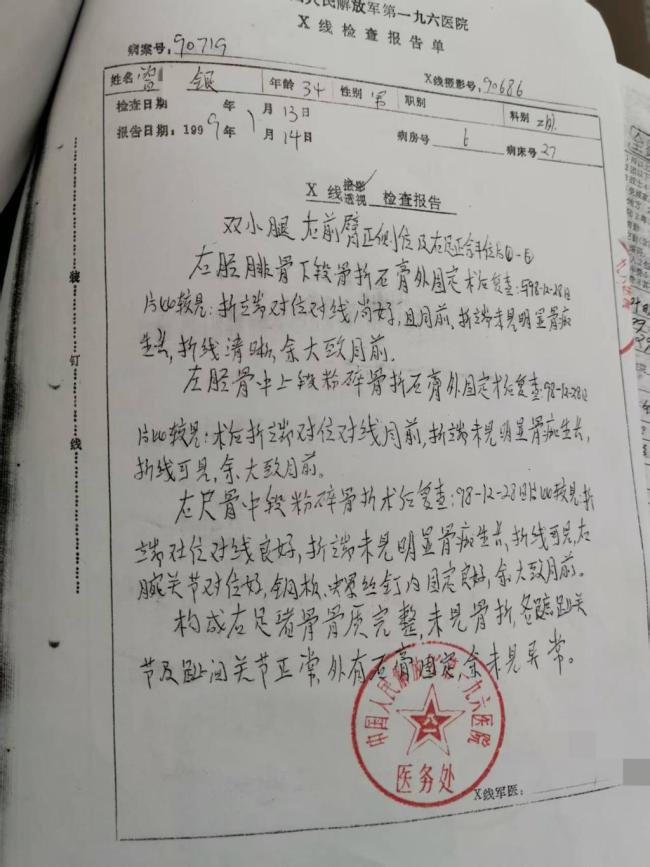 人民解放军第一九六医院
X线检查报告单
病案号:90719
X线摄影号:90686
姓名 银 年龄 34 性别 男 职别 科别
检查日期 年 1月13日
报告日期:1999年1月14日 病房号 6 病床号 27
X线摄影透视检查报告
双小腿 右前臂正侧位及右足正斜位片①-⑥
右胫腓骨下段骨折石膏外固定术后复查:与98-12-28日
片比较见:折端对位对线尚好,且同前,折端未见明显骨痂
生长,折线清晰,余大致同前。
左胫骨中上段粉碎骨折石膏外固定术后复查:98-12-28日
片比较见:术后折端对位对线同前,折端未见明显骨痂生长,
折线可见,余大致同前。
右尺骨中段粉碎骨折术后复查:98-12-28日片比较见:折
端对位对线良好,折端未见明显骨痂生长,折线可见,右
腕关节对位好,钢板、螺丝钉内固定良好,余大致同前。
构成右足诸骨骨质完整,未见骨折,各跖趾关
节及趾间关节正常,外有石膏固定,余未见异常。
中国人民解放军第一九六医院
医务处
X线军医:
装
订
线